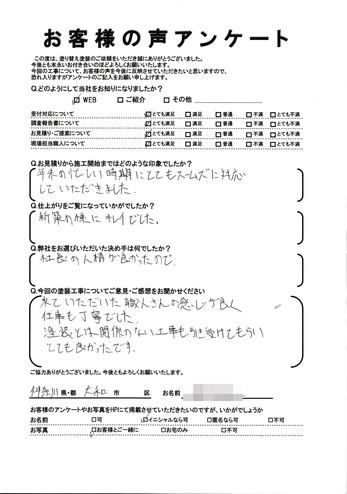 お客様の声アンケート
この度は、塗り替え塗装のご依頼をいただき誠にありがとうございました。
今後とも末永いお付き合いのほどよろしくお願いいたします。
今回の工事について、お客様の声を今後に反映させていただきたいと思いますので、
恐れ入りますがアンケートのご記入をお願い申し上げます。
Q.どのようにして当社をお知りになりましたか?
☑ WEB □ ご紹介 □ その他
受付対応について ☑とても満足 □ 満足 □ 普通 □ 不満 □ とても不満
調査報告書について ☑とても満足 □ 満足 □ 普通 □ 不満 □ とても不満
お見積り・ご提案について ☑とても満足 □ 満足 □ 普通 □ 不満 □ とても不満
現場担当職人について ☑とても満足 □ 満足 □ 普通 □ 不満 □ とても不満
Q.お見積りから施工開始まではどのような印象でしたか?
年末の忙しい時期にとてもスムーズに対応
していただきました。
Q.仕上がりをご覧になっていかがでしたか?
新築の様にキレイでした。
Q.弊社をお選びいただいた決め手は何でしたか?
社長の人柄が良かったので。
Q.今回の塗装工事についてご意見・ご感想をお聞かせください
来ていただいた職人さんの感じが良く
仕事も丁寧でした。
塗装とは関係のない工事も引き受けてもらい
とても良かったです。
ご協力ありがとうございました。今後ともよろしくお願いいたします。
神奈川 県・都 大和 市 区 お名前
お客様のアンケートやお写真をHPにて掲載させていただきたいのですが、いかがでしょうか
お名前 □可 ☑イニシャルなら可 □匿名なら可 □不可
お写真 ☑お客様とご一緒に □お宅のみ □不可